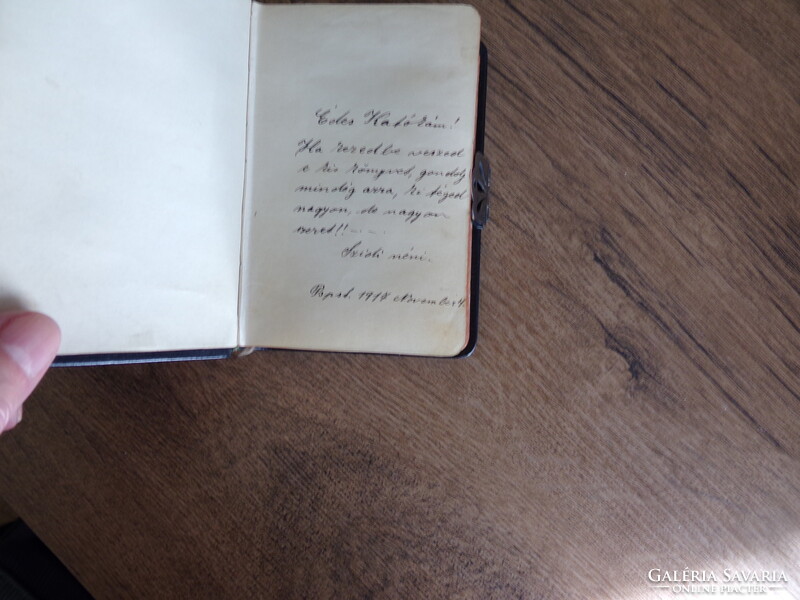 Édes Katókám!
Ha kezedbe veszed
e kis könyvet, gondolj
mindég arra, ki téged
nagyon, de nagyon
szeret!!---
Szidi néni.
1918 November 4.
GALÉRIA SAVARIA
ONLINE PIACTÉR